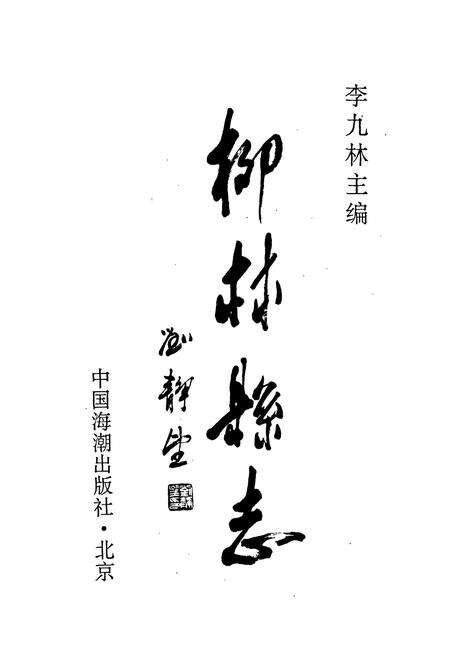 李九林主编
柳林县志
刘静山
中国海潮出版社·北京